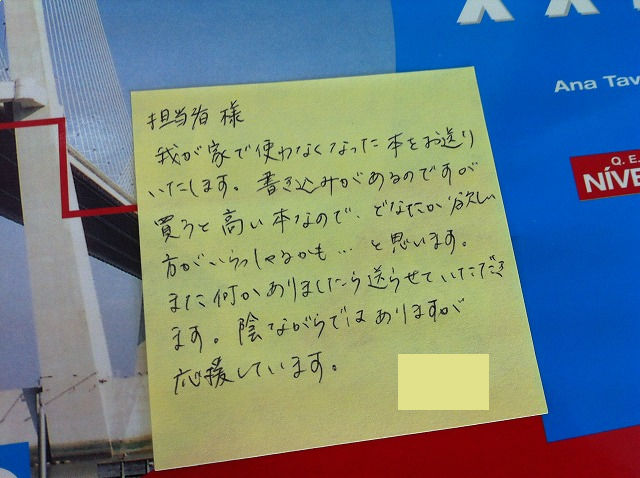 XX
Ana Tav
Q. E.
NÍVE
担当者 様
我が家で使わなくなった本をお送り
いたします。書き込みがあるのですが
買うと高い本なので、どなたか欲しい
方がいらっしゃるかも… と思います。
また何かありましたら送らせていただき
ます。陰ながらではありますが
応援しています。